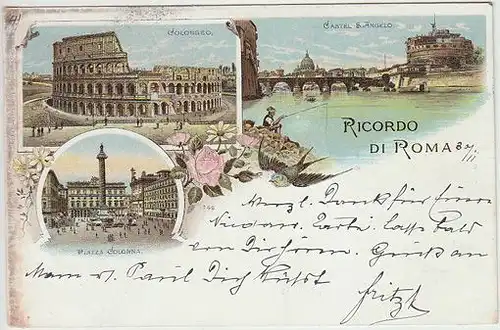 COLOSSEO.
CASTEL S. ANGELO
RICORDO
DI ROMA
PIAZZA COLONNA.
Herzl. Dank für
lass bald
von Dir hören. Gruß an
Mama u. Paul Dich küsst
Fritz